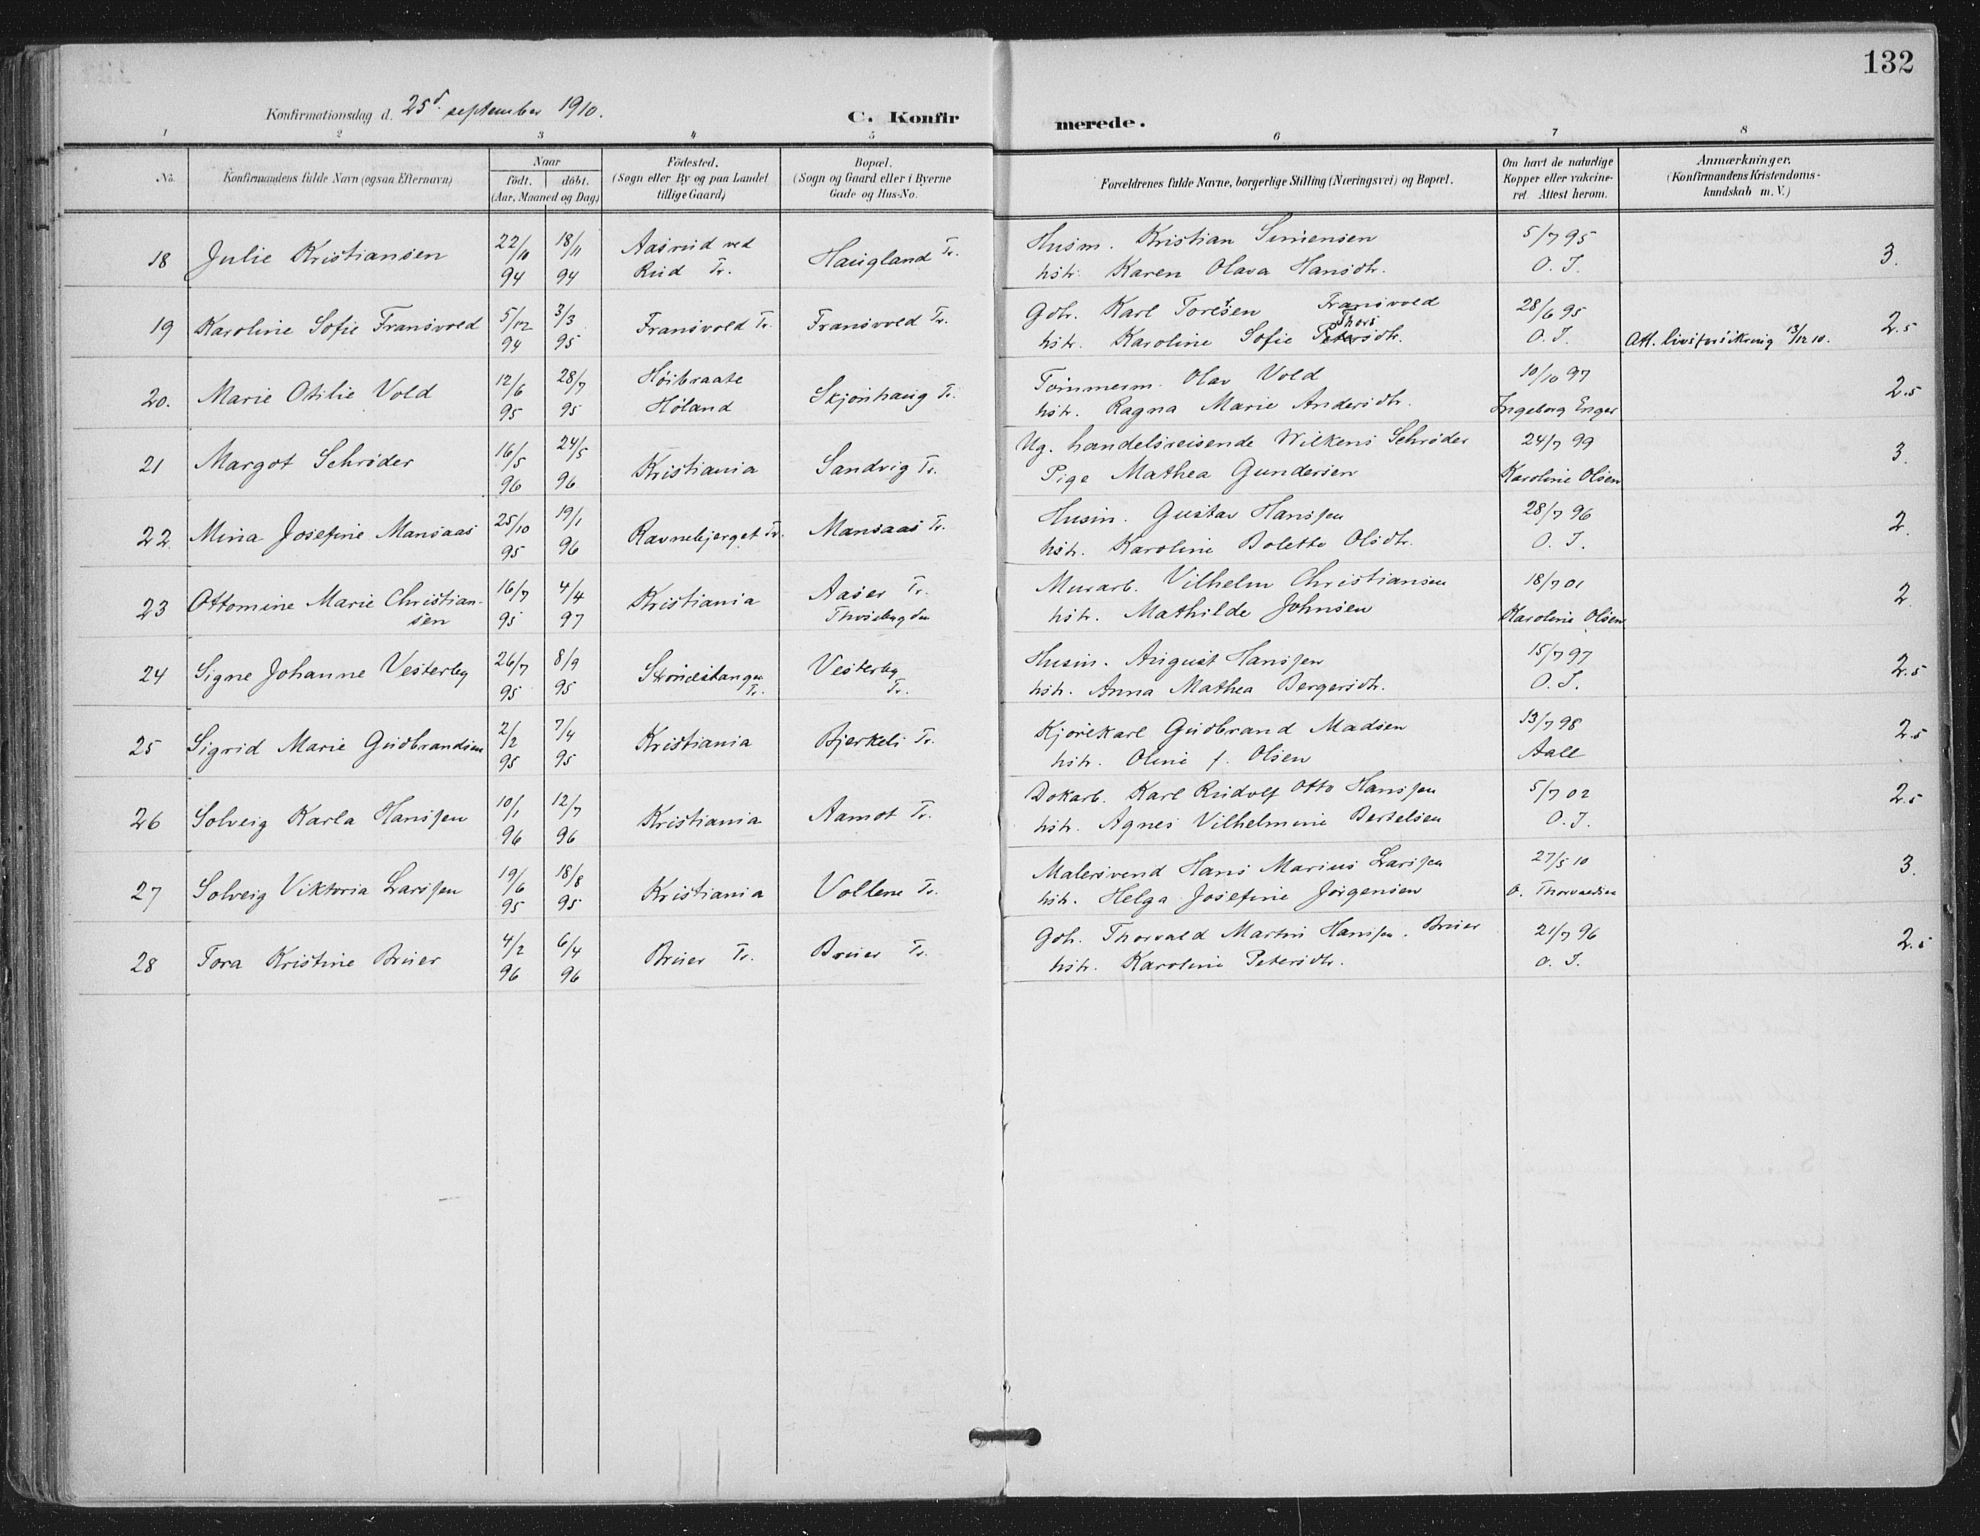 132
Konfirmationsdag d. 25d september 1910.
C. Konfirmerede.
1 2 3 4 5 6 7 8
No.
Konfirmandens fulde Navn (ogsaa Efternavn)
Naar
födt. döbt.
(Aar, Maaned og Dag)
Födested.
(Sogn eller By og paa Landet
tillige Gaard)
Bopæl.
(Sogn og Gaard eller i Byerne
Gade og Hus-No.
Forældrenes fulde Navne, borgerlige Stilling (Næringsvei) og Bopæl.
Om havt de naturlige
Kopper eller vakcine-
ret. Attest herom.
Anmærkninger.
(Konfirmandens Kristendoms-
kundskab m. V.)
18 Julie Kristiansen 22/10 94 18/11 94 Aasrud ved Rud Tr. Haugland Tr.
Husm. Kristian Simensen
hstr. Karen Olava Hansdtr.
5/7 95
O. J.
3.
19 Karoline Sofie Fransvold 5/12 94 3/3 95 Fransvold Tr. Fransvold Tr.
Gdbr. Karl Toresen Fransvold
hstr. Karoline Sofie Thorsdtr.
28/6 95
O. J.
Att. livsforsikring 13/12 10.
2.5
20. Marie Otilie Vold 12/6 95 28/7 95 Høibraate Høland Skjønhaug Tr.
Tømmerm. Olav Vold
hstr. Ragna Marie Andersdtr.
10/10 97
Ingeborg Enger
2.5
21 Margot Schrøder 16/5 96 24/5 96 Kristiania Sandvig Tr.
Ug. handelsreisende Wilkens Schrøder
Pige Mathea Gundersen
24/7 99
Karoline Olsen
3.
22. Mina Josefine Mansaas 25/10 95 19/1 96 Ravnebjerget Tr. Mansaas Tr.
Husm. Gustav Hanssen
hstr. Karoline Bolette Olsdtr.
28/7 96
O. J.
2.
23 Ottomine Marie Christian-
sen 16/7 95 4/4 97 Kristiania Aaser Tr.
Murarb. Vilhelm Christiansen
hstr. Mathilde Johnsen
18/7 01
Karoline Olsen
2.
24 Signe Johanne Vesterby 26/7 95 8/9 95 Vesterby Tr.
Husm. August Hanssen
hstr. Anna Mathea Bergersdtr.
15/7 97
O. J.
2.5
25 Sigrid Marie Gudbrandsen 2/2 95 7/4 95 Kristiania Bjerkeli Tr.
Kjørekarl Gudbrand Madsen
hstr. Oline f. Olsen
13/7 98
Aall
2.5
26 Solveig Karla Hanssen 10/1 96 12/7 96 Kristiania Aamot Tr.
Dokarb. Karl Rudolf Otto Hanssen
hstr. Agnes Vilhelmine Bertelsen
5/7 02
O. J.
2.5
27 Solveig Viktoria Larssen 19/6 95 18/8 95 Kristiania Vollene Tr.
Malersvend Hans Marius Larssen
hstr. Helga Josefine Jørgensen
27/5 10
O. Thorvaldsen
3.
28 Tora Kristine Bruer 4/2 96 6/4 96 Bruer Tr. Bruer Tr.
Gdbr. Thorvald Martin Hanssen. Bruer
hstr. Karoline Petersdtr.
21/7 96
O. J.
2.5